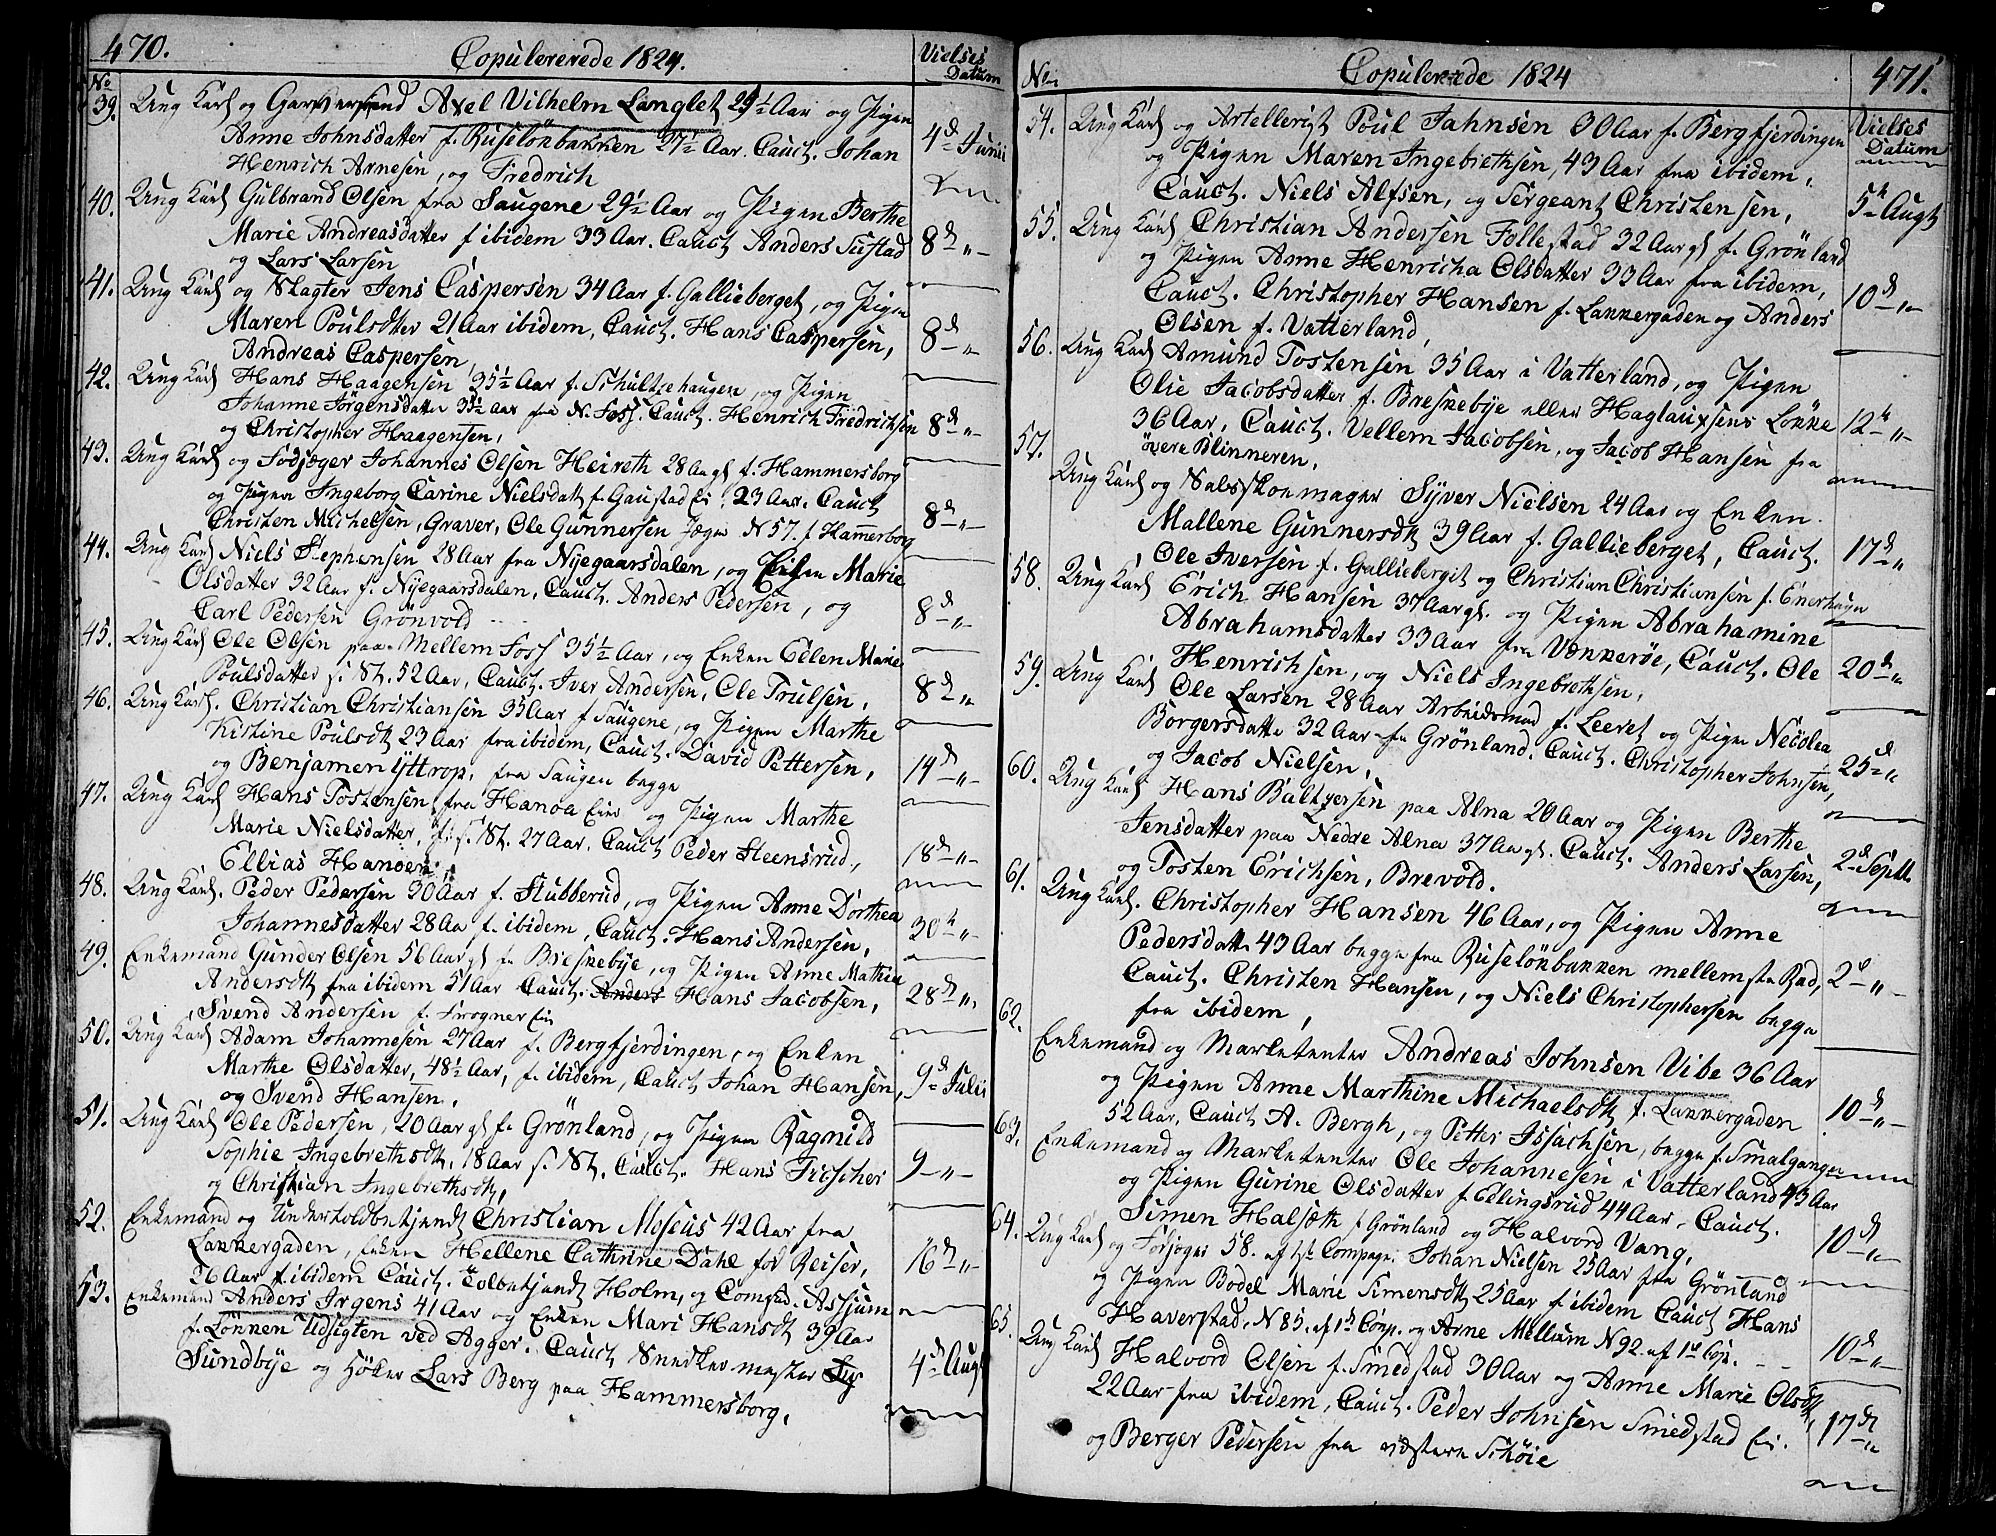 470.
Copulererede 1824.
Vielses
Datum
No
39. Ung Karl og Axel Vilhelm Langlet 29½ Aar og Pigen
Anne Johnsdatter f. Ruselønbakken 27½ Aar. Cauct. Johan
Henrich Arnesen, og Fredrich
4d Junii
40. Ung Karl Gulbrand Olsen fra Saugene 29½ Aar og Pigen Berthe
Marie Andreasdatter f ibidem 33 Aar. Cauct Anders Sustad
og Lars Larsen
8d „
41. Ung Karl og Slagter Jens Caspersen 34 Aar f. Gallieberget, og Pigen
Maren Poulsdtter 21 Aar ibidem, Cauct. Hans Caspersen,
Andreas Caspersen,
8d „
42. Ung Karl Hans Haagensen 35½ Aar f. Schultzehaugen, og Pigen
Johanne Jörgensdatter 35½ Aar fra N. Foss. Cauct. Henrich Fredrichsen
og Christopher Haagensen,
8d „
43. Ung Karl og Fodjæger Johannes Olsen Heireth 28 Aar gl f. Hammersborg
og Pigen Ingeborg Carine Nielsdatt f. Gaustad Ei, 23 Aar. Cauct
Christen Michelsen, Graver, Ole Gunnersen Jæger N 57. f Hammerborg
8d „
44. Ung Karl Niels Stephensen 28 Aar fra Nijegaarsdalen, og Marie
Olsdatter 32 Aar f. Nijegaarsdalen, Cauct. Anders Pedersen, og
Carl Pedersen Grönvold
8d „
45. Ung Karl Ole Olsen paa Mellem Foss 35½ Aar, og Enken Ellen Marie
Poulsdatter s. St. 52 Aar, Cauct. Iver Andersen, Ole Trulsen,
8d „
46. Ung Karl. Christian Christiansen 35 Aar f Saugene, og Pigen Marthe
Kistine Poulsdt 23 Aar fra ibidem, Cauct. David Pettersen,
og Benjamen Yttrop, fra Saugen begge
14d „
47. Ung Karl Hans Tostensen fra Hanoa Eie og Pigen Marthe
Marie Nielsdatter, f. s. St. 27 Aar, Cauct Peder Steensrud,
Ellias Hanoen
18d „
48. Ung Karl. Peder Pedersen 30 Aar f. Stubberud, og Pigen Anne Dorthea
Johannesdatter 28 Aa f. ibidem, Cauct. Hans Andersen,
30te „
49. Enkemand Gunder Olsen 56 Aar gl fra Breskebye, og Pigen Anne Mathea
Andersdt fra ibidem 51 Aar Cauct. Anders Hans Jacobsen,
Svend Andersen f. Frogner Eie
28d „
50. Ung Karl Adam Johannesen 27 Aar f. Bergfjerdingen, og Enken
Marthe Olsdatter, 48½ Aar, f. ibidem, Cauct Johan Hansen,
og Svend Hansen,
9d Julii
51. Ung Karl Ole Pedersen, 20 Aar gl f. Grönland, og Pigen Ragnild
Sophie Ingebrethsdt, 18 Aar s. St, Cauct. Hans Frischer
og Christian Ingebrethsdt,
9 „
52. Enkemand og Underholdbetjendt Christian Moseus 42 Aar fra
Lakkergaden, Enken Hellene Cathrine Dahl for Reiser,
26 Aar f. ibidem Cauct. Tolbetjendt Holm, og Assjum
16d „
53. Enkemand Anders Irgens 41 Aar og Enken Mari Hansdt 39 Aar
f. Løkken Udsigten ved Agger. Cauct Snedkermester
Sundbye og Höker Lars Berg paa Hammersborg.
4d Augt
No
Copulerede 1824
471.
Vielses
Datum
54. Ung Karl og Artellerist Poul Jahnsen 30 Aar f. Bergfjerdingen
og Pigen Maren Ingebrethsen, 43 Aar fra ibidem,
Cauct. Niels Alfsen, og Sergeant Christensen,
5te Augt
55. Ung Karl Christian Andersen Follestad 32 Aar gl f. Grönland
og Pigen Anne Henricha Olsdatter 33 Aar fra ibidem,
Cauct. Christopher Hansen f. Lakkergaden og Anders
Olsen f. Vatterland,
10d „
56. Ung Karl Amund Tostensen 35 Aar i Vatterland, og Pigen
Olie Jacobsdatter f. Breskebye eller Løkke
36 Aar, Cauct. Vellem Jacobsen, og Jacob Hansen fra
øvere Blinneren,
12te „
57. Ung Karl og Salsskoemager Syver Nielsen 24 Aar og Enken
Mallene Gunnersdt 39 Aar f. Gallieberget, Cauct.
Ole Iversen f. Gallieberget og Christian Christiansen f. Enerhugen
17d „
58. Ung Karl Erich Hansen 37 Aar gl. og Pigen Abrahamine
Abrahamsdatter 33 Aar fra Vækkerøe, Cauct. Ole
Henrichsen, og Niels Ingebrethsen,
20d „
59. Ung Karl Ole Larsen 28 Aar Arbeidsmd f. Leeret og Pigen Necolea
Borgersdatte 32 Aar fra Grönland. Cauct. Christopher Johnsen,
og Jacob Nielsen,
25d „
60. Ung Karl Hans Baltzersen paa Alna 20 Aar og Pigen Berthe
Jensdatter paa Nedre Alna 37 Aa gl. Cauct. Anders Larsen,
og Tosten Erichsen, Brevold.
2d Septt.
61. Ung Karl. Christopher Hansen 46 Aar, og Pigen Anne
Pedersdatt 43 Aar begge fra Ruseløkbakken mellemste Rad,
Cauct. Christen Hansen, og Niels Christophersen begge
fra ibidem,
2d „
62. Enkemand og Marketenter Andreas Johnsen Vibe 36 Aar
og Pigen Anne Marthine Michaelsdt f. Lakkergaden
52 Aar, Cauct A. Bergh, og Petter Issachsen, begge f. Smalgangen
10d „
63. Enkemand og Marketenter Ole Johannesen i Vatterland 43 Aar
og Pigen Gurine Olsdatter f. Edlingsrud 44 Aar, Cauct.
Simen Halseth f Grönland og Halvord Vang,
10d „
64. Ung Karl og Fodjæger 58. af 1ste Compage. Johan Nielsen 25 Aar fra Grönland
og Pigen Bodel Marie Simensdt 25 Aar f. ibidem Cauct Hans
Haverstad, N 85. af 1st Comp. og Arne Mellum N 92. af 1st Cop.
10d „
65. Ung Karl Halvord Olsen f. Smedstad 30 Aar og Anne Marie Olsdt
22 Aar fra ibidem, Cauct. Peder Johnsen Smedstad Eie.
og Berger Pedersen fra Schöie
17d „